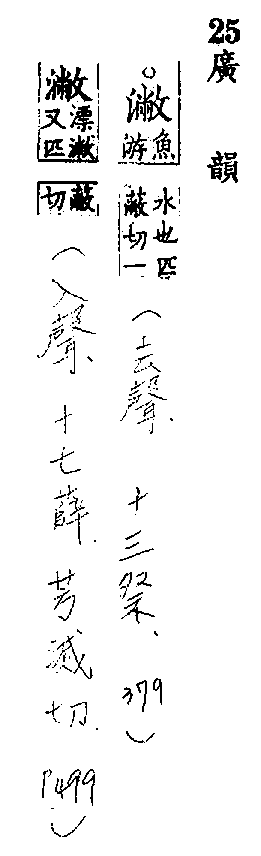 25廣韻
○潎魚游水也匹蔽切一(去聲、十三祭、379)
潎漂潎又匹蔽切(入聲、十七薛、芳滅切、P499)